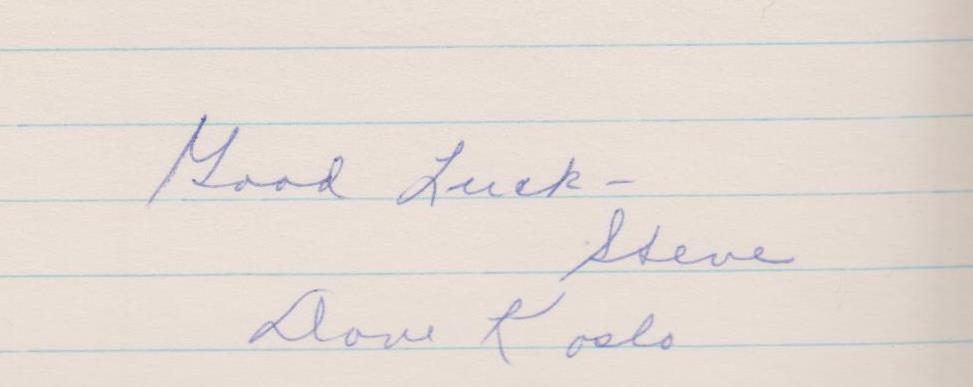 Good Luck-
Steve
Dave Koslo